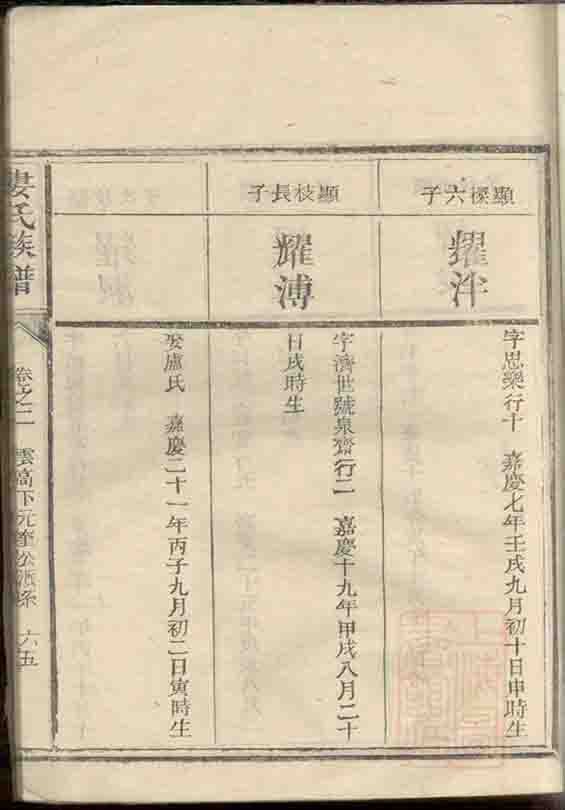 顯檪六子
耀泮
字思樂行十　嘉慶七年壬戌九月初十日申時生
顯枝長子
耀溥
字濟世號泉齋行二　嘉慶十九年甲戌八月二十
日戌時生
娶盧氏　嘉慶二十一年丙子九月初二日寅時生
婁氏族譜
卷之二　雲高下元奎公派系　六五